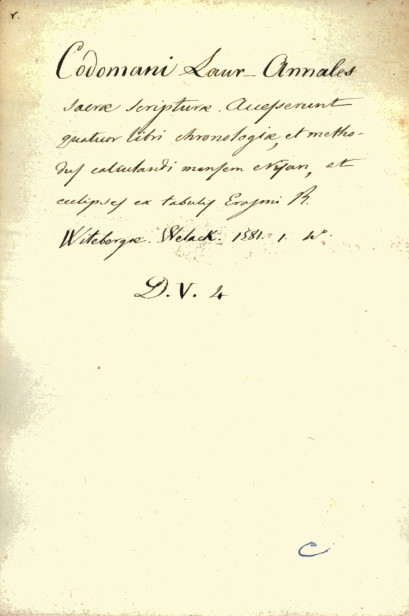 r.
Codomani Laur_ Annales
sacræ scripturæ. Accesserunt
quatuor libri chronologiæ, et metho-
dus calculandi mensem Nisan, et
eclipses ex tabulis Erasmi R.
Witebergæ. Welack. 1581. 1. 4º.
D. V. 4
C